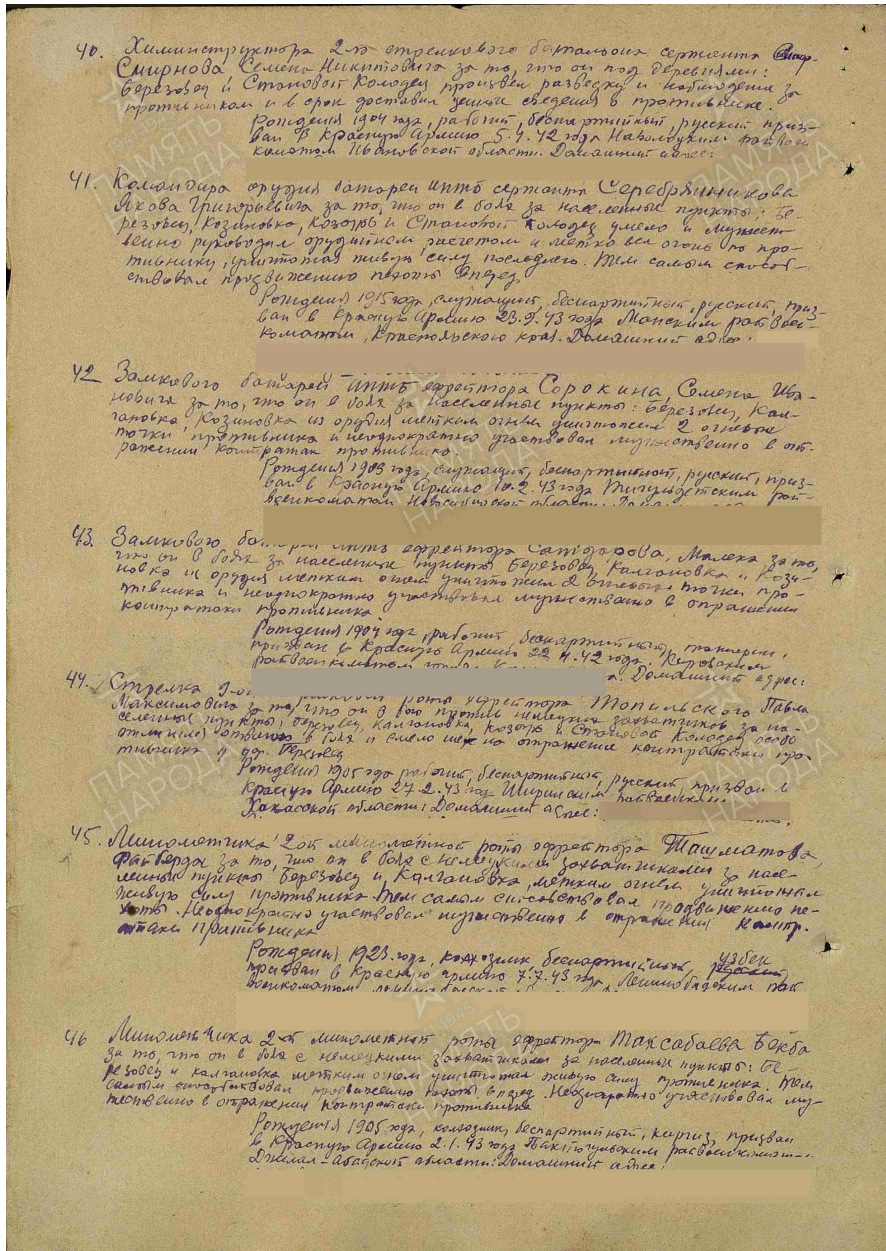 40. Химинструктора 2-го стрелкового батальона сержанта
Смирнова Семена Никитовича за то, что он под деревнями:
Березовец и Становой Колодец произвел разведку и наблюдение за
противником и в срок доставил ценные сведения о противнике.
Рождения 1904 года, рабочий, беспартийный, русский, приз-
ван в Красную Армию 5.4.42 года райвоен-
коматом Ивановской области. Домашний адрес:
41. Командира орудия батареи ИПТБ сержанта Серебрянникова
Якова Григорьевича за то, что он в боях за населенные пункты: Бе-
резовец, Козиновка, Козорь и Становой Колодец умело и мужест-
венно руководил орудийным расчетом и метко вел огонь по про-
тивнику, уничтожал живую силу последнего. Тем самым способ-
ствовал продвижению пехоты вперед
Рождения 1915 года, служащий, беспартийный, русский, приз-
ван в Красную Армию 23.9.43 года Манским райвоен-
коматом, Красноярского края. Домашний адрес:
42 Замкового батареи ИПТБ ефрейтора Сорокина, Семена Ива-
новича за то, что он в боях за населенные пункты: Березовец, Кал-
гановка, Козиновка из орудия метким огнем уничтожил 2 огневые
точки противника и неоднократно участвовал мужественно в от-
ражении контратак противника.
Рождения 1903 года, служащий, беспартийный, русский, приз-
ван в Красную Армию 10.2.43 года Тигульдетским рай-
военкоматом Новосибирской области.
43. Замкового батареи ИПТБ ефрейтора Сапдарова, Малека за то,
что он в боях за населенные пункты Березовец, Калгановка и Кози-
новка из орудия метким огнем уничтожил 2 огневых точки про-
тивника и неоднократно участвовал мужественно в отражении
контратаки противника
Рождения 1904 года, рабочий, беспартийный,
призван в Красную Армию 22.4.42 года. Кировским
райвоенкоматом Домашний адрес:
44. Стрелка роты ефрейтора Топильского Павла
Максимовича за то, что он в бою против немецких захватчиков за на-
селенные пункты: Березовец, Калгановка, Козорь и Становой Колодец особо
отличился отвагою в боях и смело шел на отражение контратаки про-
тивника у дер. Березовец
Рождения 1905 года рабочий, беспартийный, русский, призван в
Красную Армию 27.2.43 года Ширинским райвоенкоматом
Хакасской области: Домашний адрес:
45. Минометчика 2-ой минометной роты ефрейтора Ташматова,
Файберда за то, что он в боях с немецкими захватчиками за насе-
ленные пункты Березовец и Калгановка, метким огнем уничтожал
живую силу противника. Тем самым способствовал продвижению пе-
хоты. Неоднократно участвовал мужественно в отражении контр-
атаки противника
Рождения 1923 года, колхозник беспартийный, русский, узбек
призван в Красную армию 7.7.43 года, Ленинабадским рай
военкоматом Ленинабадской
46 Минометчика 2-ой минометной роты ефрейтора Максабаева Бекба
за то, что он в боях с немецкими захватчиками за населенные пункты: Бе-
резовец и Калгановка метким огнем уничтожал живую силу противника. Тем
самым способствовал продвижению пехоты вперед. Неоднократно участвовал му-
жественно в отражении контратаки противника
Рождения 1905 года, колхозник, беспартийный, киргиз, призван
в Красную Армию 2.1.43 года Токтогульским райвоенкоматом
Джелал-Абадской области: Домашний адрес: